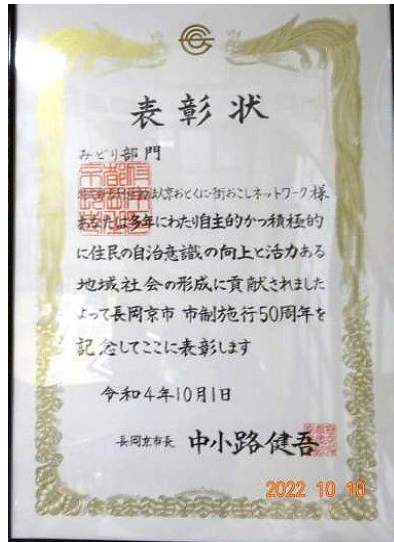 表彰状
みどり部門
法人京おとくに・街おこしネットワーク様
あなたは多年にわたり自主的かつ積極的
に住民の自治意識の向上と活力ある
地域社会の形成に貢献されました
よって長岡京市 市制施行50周年を
記念してここに表彰します
令和4年10月1日
長岡京市長 中小路健吾
2022 10 10